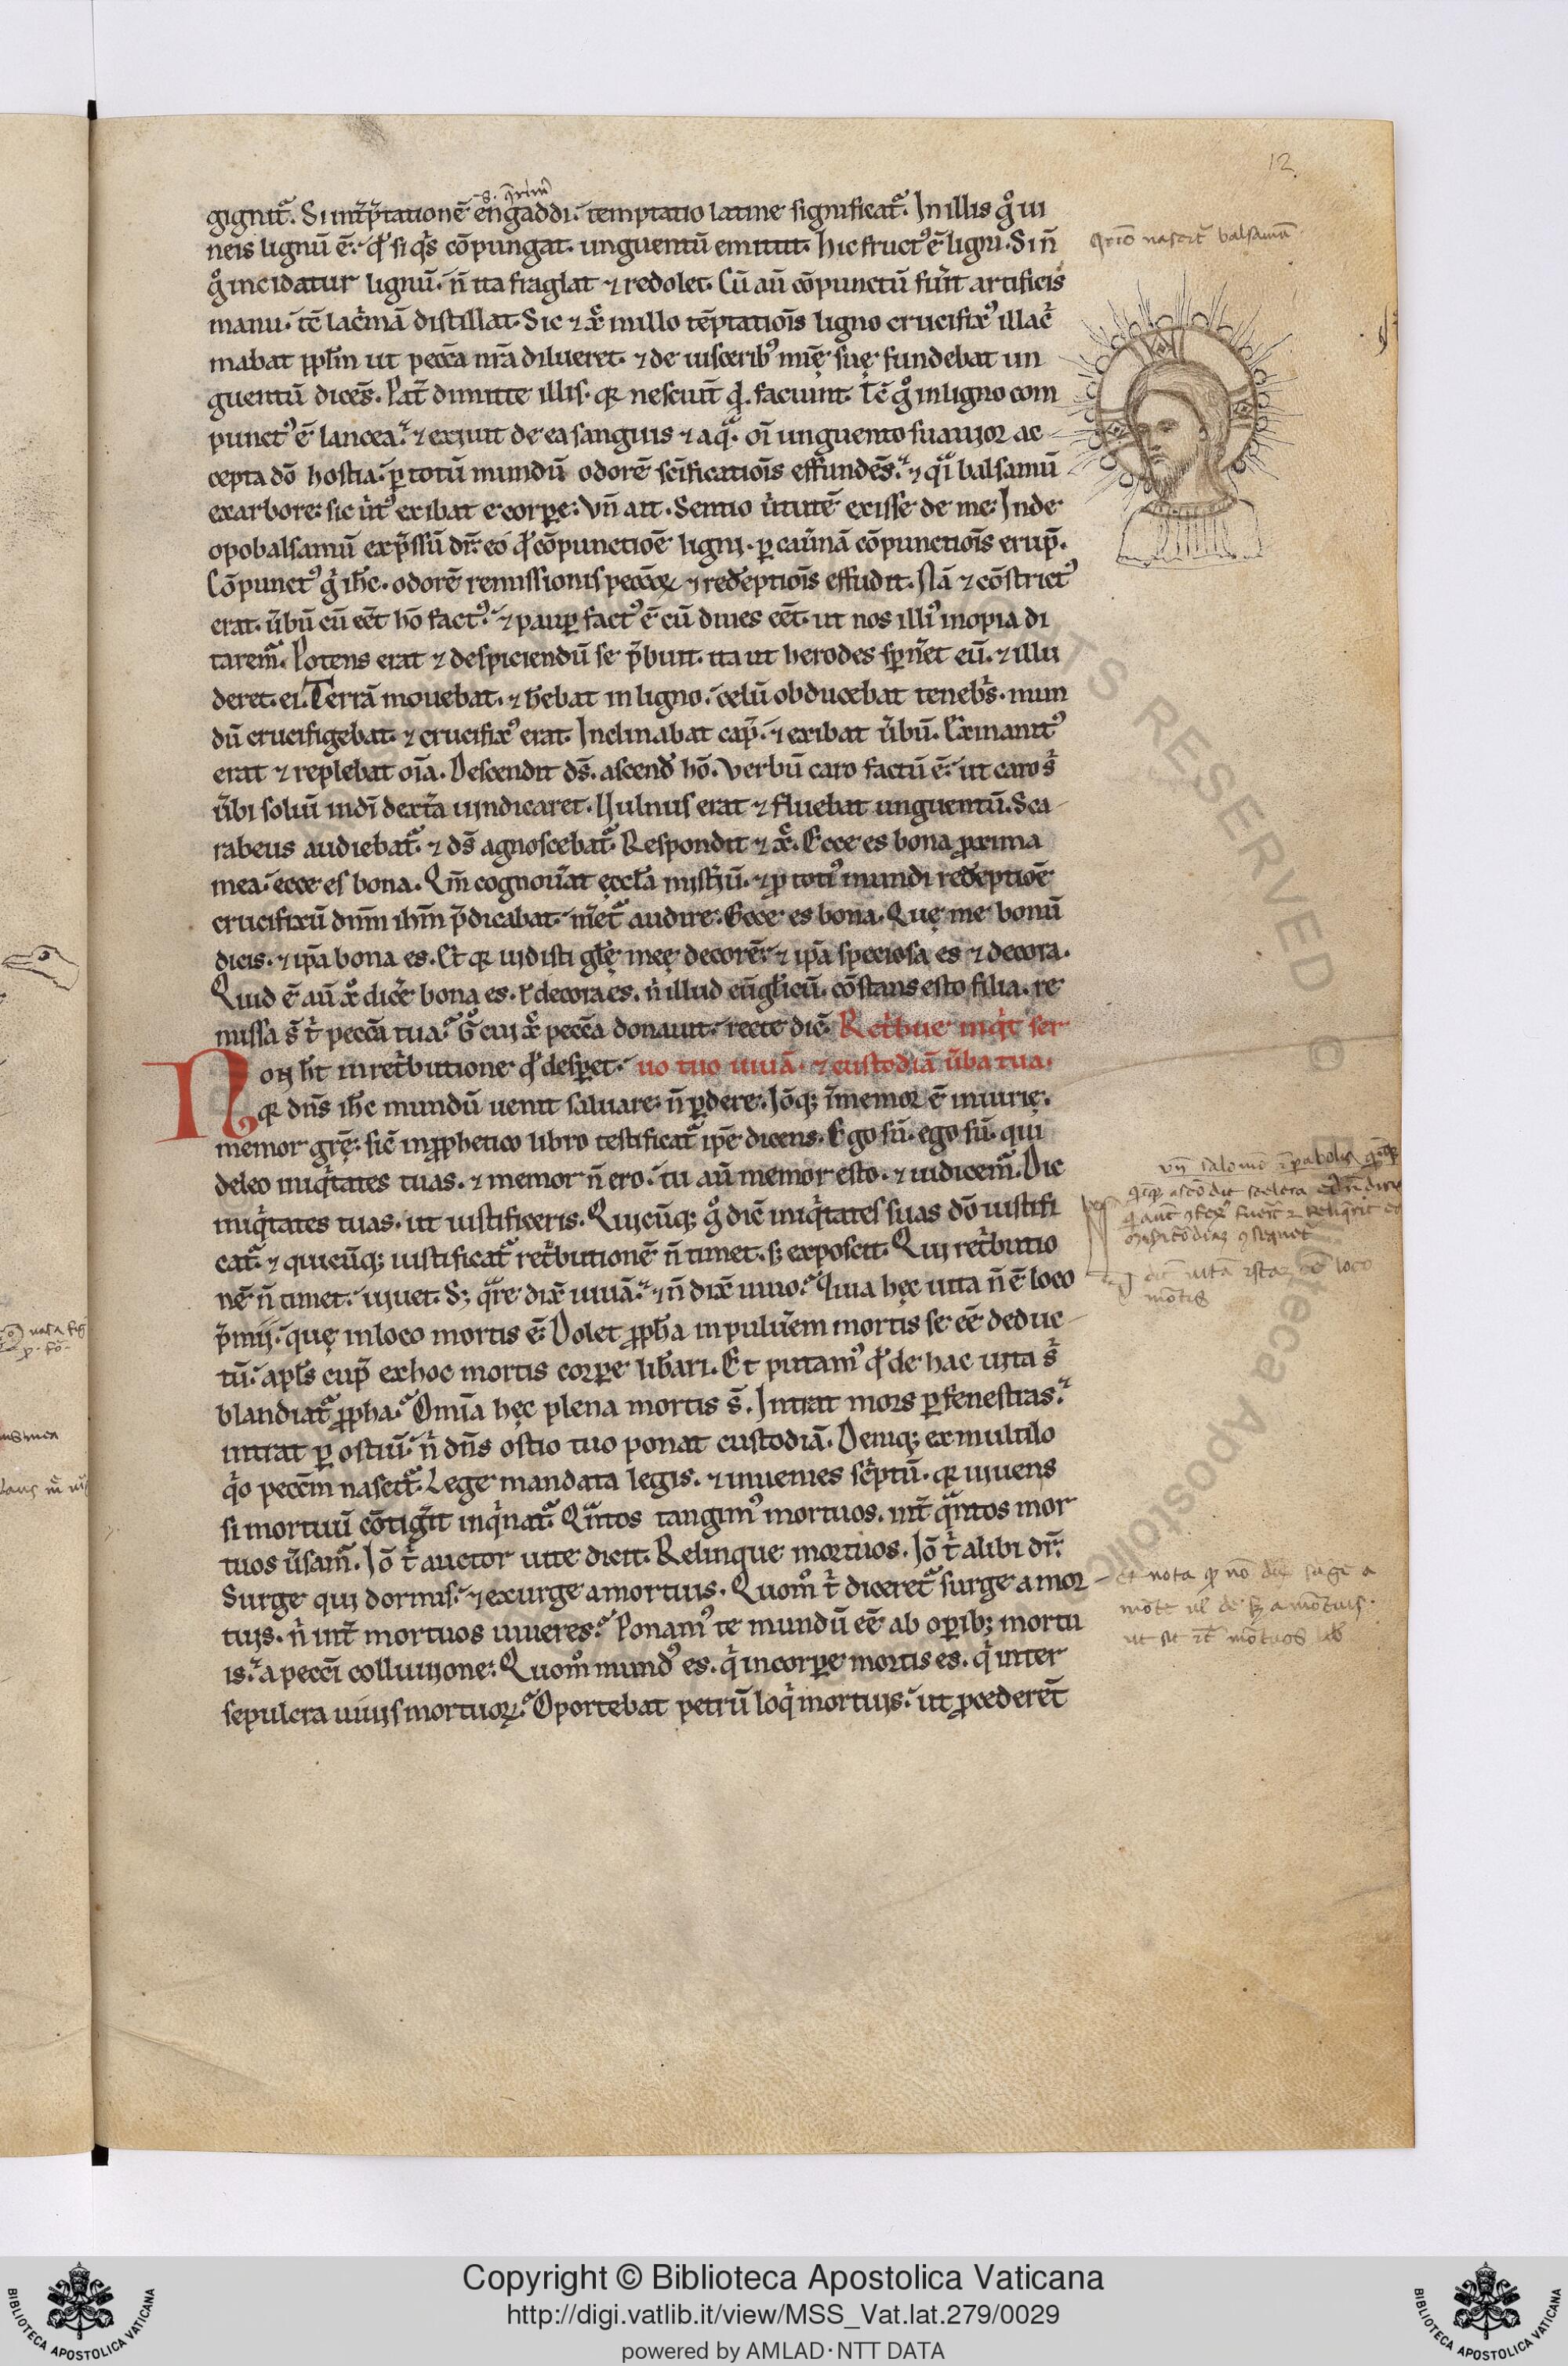 12
gignit᷑. Si int̄p̄tationē engaddi. temptatio latine significat᷑. In illis gͦ ui
neis lignū ē. qd̕ si qͥs cōpungat. unguentū emittit. hic fruct᷒ ē ligni. Si n̄
gͦ incidatur lignū. n̄ ita fraglat ⁊ redolet. Cū aū cōpunctū fūit artificis
manu. tc̄ lacͥmā distillat. Sic ⁊ xp̄c in illo tēptatiōis ligno crucifix᷒ illacͥ
mabat pp̄lm ut pecc̄a nr̄a dilueret. ⁊ de uiscerib᷒ mīę suę fundebat un
guentū dicēs. Pat̄ dimitte illis. qr nesciūt qͥd faciunt. Tc̄ gͦ in ligno com
punct᷒ ē lancea. ⁊ exiuit de ea sanguis ⁊ aqͣ. oī unguento suauior ac
cepta dō hostia. ꝑ totū mundū odorē sc̄ificatiōis effundēs. ⁊ qͣi balsamū
ex arbore. sic ūt᷒ exibat e corꝑe. vn̄ ait. Sentio ūtutē exisse de me. Inde
opobalsamū exp̄ssū dr̄. eo qd̕ cōpunctiōe ligni. ꝑ cauͬnā cōpunctiōis erup̄.
Cōpunct᷒ gͥ ih̄c. odorē remissionis pecc̄oꝝ ⁊ redēptiōis effudit. Nā ⁊ cōstrict᷒
erat. ūbū cū eēt hō fact᷒. ⁊ pauꝑ fact᷒ ē cū diues eēt. ut nos illi᷒ inopia di
tarem᷑. Potens erat ⁊ despiciendū se p̄buit. ita ut herodes sꝑn̄et eū. ⁊ illu
deret. ei. Terrā mouebat. ⁊ h̄ebat in ligno. celū obducebat tenebͥs. mun
dū crucifigebat. ⁊ crucifix᷒ erat. Inclinabat cap̄. ⁊ exibat ūbū. Exinanit᷒
erat ⁊ replebat oīa. Descendit ds̄. ascend̄ hō. Verbū caro factū ē. ut caro sͥ
ūbi soliū in dī dext̄a uindicaret. Uulnus erat ⁊ fluebat unguentū. Sca
rabeus audiebat᷑. ⁊ ds̄ agnoscebat᷑. Respondit ⁊ xp̄c. Ecce es bona ꝓxima
mea. ecce es bona. Qm̄ cognoūat ęccl̄a mist̄iū. ⁊ ꝓ toti᷒ mundi redēptiōe
crucifixū dnm̄ ih̄m p̄dicabat. m̄et᷑ audire. Ecce es bona. Quę me bonū
dicis. ⁊ ip̄a bona es. Et qr uidisti gl̄ę meę decorē. ⁊ ip̄a speciosa es ⁊ decora.
Quid ē aū xp̄o dic̄e bona es. ł decora es. nͥ illud eūgl̄icū. cōstans esto filia. re
missa s̄ tͥ pecc̄a tua. Gͦ cui xp̄c pecc̄a donauit. recte dic̄. Retͥbue inqͥt ser
Non h̄t in retͥbutione qd̕ desꝑet. uo tuo uiuā. ⁊ custodiā ūba tua.
qr dn̄s ih̄c mundū uenit saluare. n̄ ꝑdere. Iō qꝫ īmemor ē iniurię.
memor gr̄ę. sic̄ in ꝓphetico libro testificat᷑ ip̄e dicens. Ego sū. ego sū. qui
deleo iniqͥtates tuas. ⁊ memor n̄ ero. tu aū memor esto. ⁊ iudicem᷑. Dic
iniqͥtates tuas. ut iustificeris. Quicūqꝫ gͦ dic̄ iniqͥtates suas dō iustifi
cat᷑. ⁊ quicūqꝫ iustificat᷑ retͥbutionē n̄ timet. sꝫ exposcit. Qui retͥbutio
nē n̄ timet. uiuet. Sꝫ qͣre dix̄ uiuā. ⁊ n̄ dix̄ uiuo. Quia hęc uita n̄ ē loco
p̄mij. quę in loco mortis ē. Dolet ꝓph̄a in puluēm mortis se eē deduc
tū. apl̄s cup̄ ex hoc mortis corꝑe lib̄ari. Et putam᷒ qd̕ de hac uita sͥ
blandiat᷑ ꝓpha. Omīa hęc plena mortis s̄. Intrat mors ꝑ fenestras.
intrat ꝑ ostiū. nͥ dn̄s ostio tuo ponat custodiā. Deniqꝫ ex multilo
qͥo pecc̄m nascit᷑. Lege mandata legis. ⁊ inuenies scͥptū. qr uiuens
si mortuū cōtigīt inqͥnat᷑. Qͣntos tangim᷒ mortuos. int̄ qͣntos mor
tuos ūsam᷑. Iō tͥ auctor uite dicit. Relinque mortuos. Iō tͥ alibi dr̄.
Surge qui dormis. ⁊ exurge a mortuis. Quomͦ tͥ diceret᷑ surge a mor
tuis. nͥ int̄ mortuos uiueres. Ponam᷒ te mundū eē ab oꝑibꝫ mortu
is. a pecc̄i colluuione. Quomͦ mund᷒ es. qͥ in corꝑe mortis es. qͥ inter
sepulcra uiuis mortuoꝝ. Oportebat petrū loqͥ mortuis. ut ꝓcederēt
nascit᷑ balsamū
vn̄ salomō
dic̄ uitā istā loco
mōtis
nota qd̕ nō dic̄ surge a
a mōtuis
Copyright © Biblioteca Apostolica Vaticana
http://digi.vatlib.it/view/MSS_Vat.lat.279/0029
powered by AMLAD·NTT DATA
BIBLIOTECA APOSTOLICA VATICANA
BIBLIOTECA APOSTOLICA VATICANA